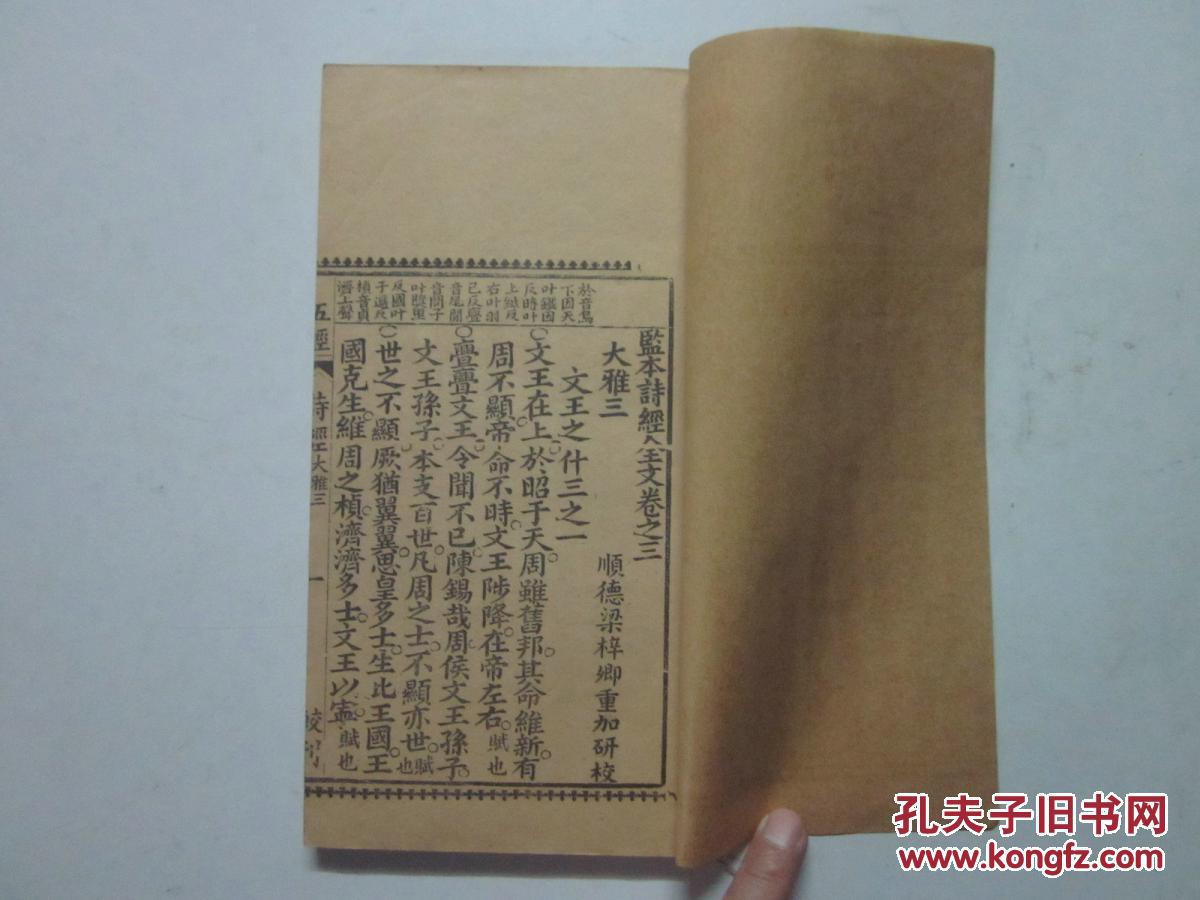 監本詩經全文卷之三
大雅三
順德梁梓卿重加研校
文王之什三之一
○文王在上。於昭于天。周雖舊邦。其命維新。有
周不顯。帝命不時。文王陟降。在帝左右。賦也
○亹亹文王。令聞不已。陳錫哉周。侯文王孫子。
文王孫子。本支百世。凡周之士。不顯亦世。賦也
○世之不顯。厥猶翼翼。思皇多士。生此王國。王
國克生。維周之楨。濟濟多士。文王以寧。賦也
於音烏
下因天
叶鐵因
反時叶
上紙反
右叶羽
己反亹
音尾聞
音問子
叶獎里
反國叶
于逼反
楨音貞
濟上聲
五經
詩經大雅三
一
校刊
孔夫子旧书网
www.kongfz.com